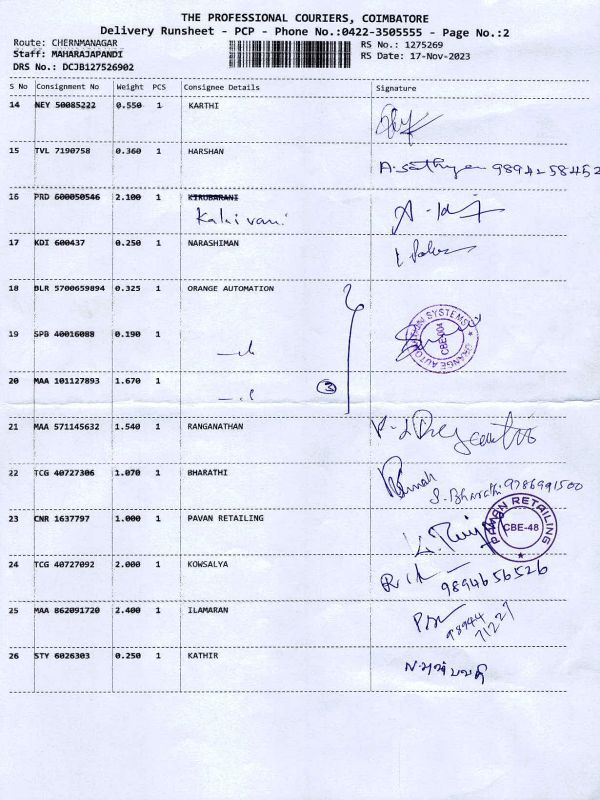 THE PROFESSIONAL COURIERS, COIMBATORE
Delivery Runsheet - PCP - Phone No.:0422-3505555 - Page No.:2
Route: CHERNMANAGAR
Staff: MAHARAJAPANDI
DRS No.: DCJB127526902
RS No.: 1275269
RS Date: 17-Nov-2023
S No Consignment No Weight PCS Consignee Details Signature
14 NEY 50085222 0.550 1 KARTHI
15 TVL 7190758 0.360 1 HARSHAN
A. Sathya 9894258452
16 PRD 600050546 2.100 1 KIRUBARANI
Kalaivani
17 KDI 600437 0.250 1 NARASHIMAN
18 BLR 5700659894 0.325 1 ORANGE AUTOMATION
19 SPB 40016088 0.190 1
ORANGE AUTOMATION SYSTEMS
CBE-004
20 MAA 101127893 1.670 1
3
21 MAA 571145632 1.540 1 RANGANATHAN
22 TCG 40727306 1.070 1 BHARATHI
S. Bharathi 9786991500
23 CNR 1637797 1.000 1 PAVAN RETAILING
RETAILING
CBE-48
24 TCG 40727092 2.000 1 KOWSALYA
9894656526
25 MAA 862091720 2.400 1 ILAMARAN
98944
71227
26 STY 6026303 0.250 1 KATHIR